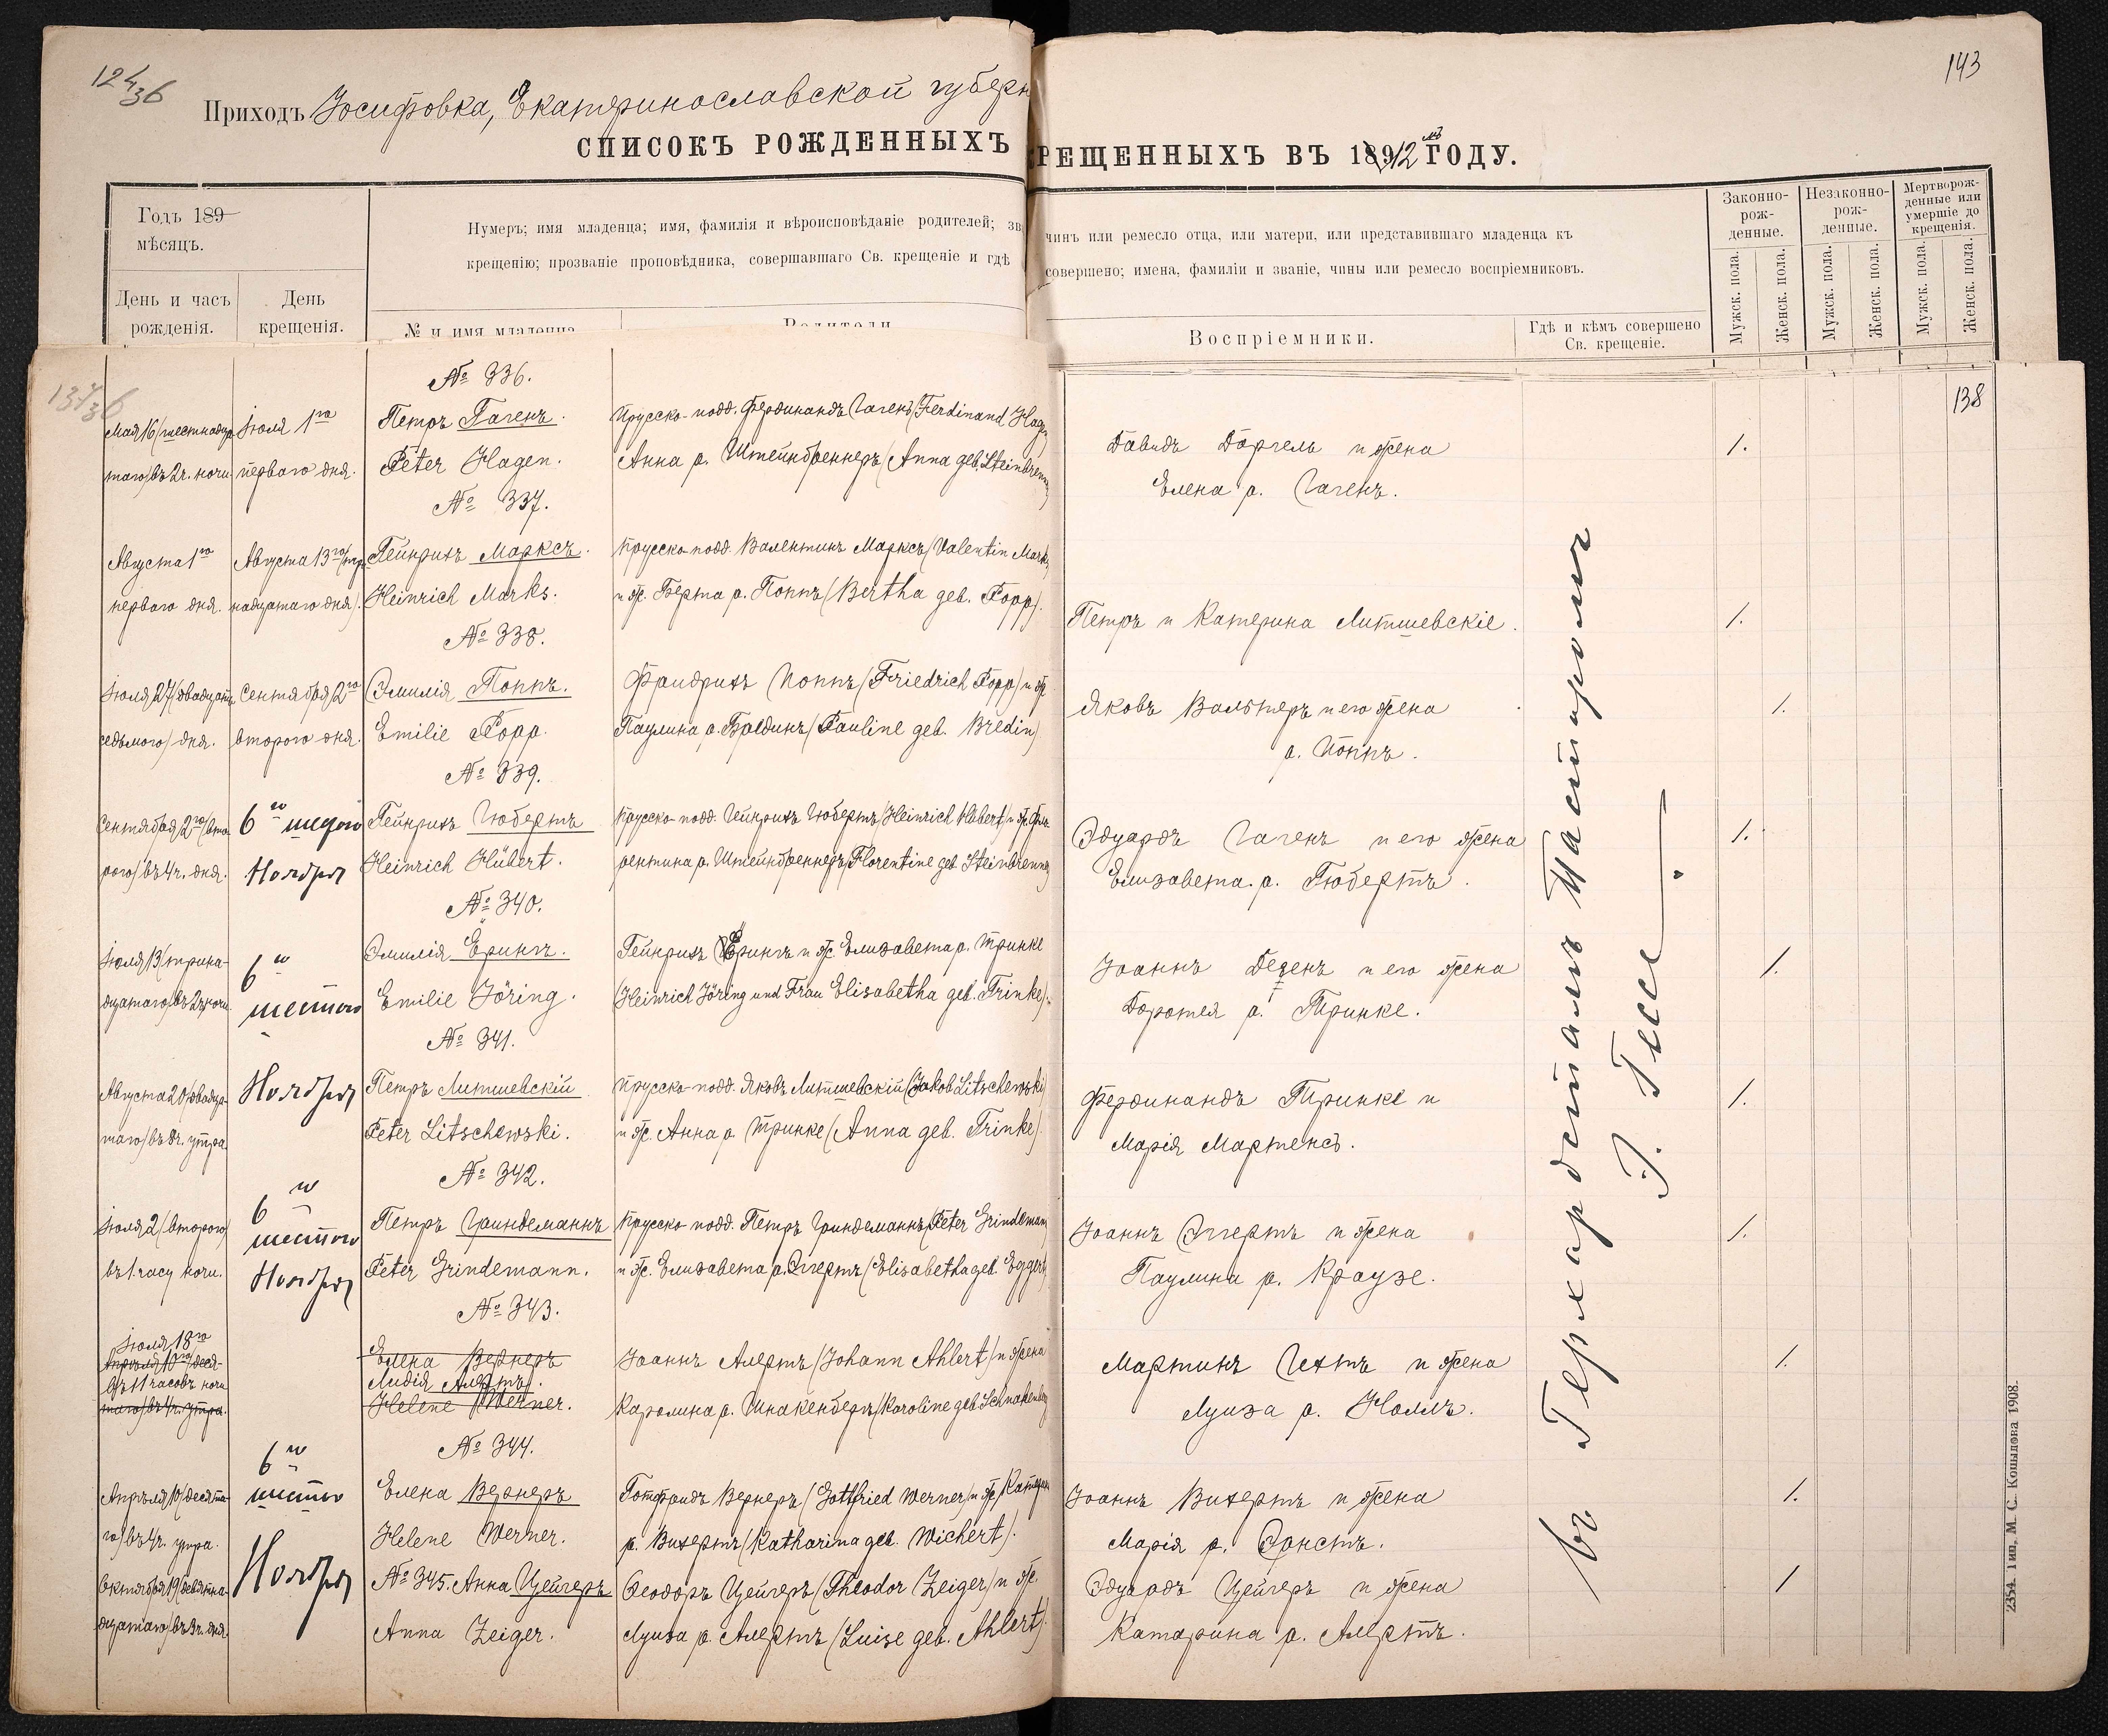 124/36
143
Приходъ Іосифовка, Екатеринославской губерн
СПИСОКЪ РОЖДЕННЫХЪ
РЕЩЕННЫХЪ ВЪ 1912 мъ ГОДУ.
Годъ 189
мѣсяцъ.
День и часъ рожденія.
День крещенія.
Нумеръ; имя младенца; имя, фамилія и вѣроисповѣданіе родителей; зв
чинъ или ремесло отца, или матери, или представившаго младенца къ
крещенію; прозваніе проповѣдника, совершавшаго Св. крещеніе и гдѣ
совершено; имена, фамиліи и званіе, чины или ремесло воспріемниковъ.
№ и имя младенца
Родители
Воспріемники.
Гдѣ и кѣмъ совершено
Св. крещеніе.
Законно-
рож-
денные.
Незаконно-
рож-
денные.
Мертворож-
денные или
умершіе до
крещенія.
Мужск. пола.
Женск. пола.
Мужск. пола.
Женск. пола.
Мужск. пола.
Женск. пола.
138
№ 336.
Мая 16 (шестнадца
таго) въ 2 ч. ночи.
Іюля 1го
перваго дня.
Петръ Гагенъ.
Peter Hagen.
Прусско-подд. Фердинандъ Гагенъ (Ferdinand Hagen
Анна р. Штейнбреннеръ (Anna geb. Steinbrenner
Давидъ Даргель и жена
Елена р. Гагенъ.
1.
№ 337.
Августа 1го
перваго дня.
Августа 13го (три
надцатаго дня).
Гейнрихъ Марксъ.
Heinrich Marks.
Прусско-подд. Валентинъ Марксъ (Valentin Marks
и ж. Берта р. Поппъ (Bertha geb. Popp).
Петръ и Катерина Литшевскіе.
1.
№ 338.
Іюля 27 (двадцать
седьмого) дня.
Сентября 2го
второго дня.
Эмилія Поппъ.
Emilie Popp.
Фридрихъ Поппъ (Friedrich Popp) и ж.
Паулина р. Брединъ (Pauline geb. Bredin)
Яковъ Вальтеръ и его жена
р. Поппъ.
1.
№ 339.
Сентября 2го (вто
рого) въ 4 ч. дня.
6го шестого
Ноября
Гейнрихъ Гюбертъ
Heinrich Hübert.
Прусско-подд. Гейнрихъ Гюбертъ (Heinrich Hübert) и ж. Фло
рентина р. Штейнбреннеръ (Florentine geb. Steinbrenner
Эдуардъ Гагенъ и его жена
Елизавета р. Гюбертъ.
1.
№ 340.
Іюля 13 (трина-
дцатаго) въ 2 ч. ночи
6го
шестого
Эмилія Ёрингъ.
Emilie Jöring.
Гейнрихъ Ёрингъ и ж. Елизавета р. Тринке
(Heinrich Jöring und Frau Elisabetha geb. Trinke).
Іоаннъ Деденъ и его жена
Доротея р. Тринке.
1.
№ 341.
Августа 20 (двадца-
таго) въ 8 ч. утра.
Ноября
Петръ Литшевскій
Peter Litschewski.
Прусско-подд. Яковъ Литшевскій (Jakob Litschewski
и ж. Анна р. Тринке (Anna geb. Trinke).
Фердинандъ Тринке и
Марія Мартенсъ.
1.
№ 342.
Іюля 2 (второго)
въ 1 часу ночи.
6го
шестого
Ноября
Петръ Гриндеманнъ
Peter Grindemann.
Прусско-подд. Петръ Гриндеманнъ (Peter Grindemann
и ж. Елизавета р. Эггертъ (Elisabetha geb. Eggert)
Іоаннъ Эггертъ и жена
Паулина р. Краузе.
1.
№ 343.
Іюля 18го
Апрѣля 10го (деся-
въ 11 часовъ ночи
таго) въ 4 ч. утра.
Елена Вернеръ
Лидія Алертъ.
Helene Werner.
Іоаннъ Алертъ (Johann Ahlert) и жена
Каролина р. Шнакенбергъ (Karoline geb. Schnakenberg
Мартинъ Гехтъ и жена
Луиза р. Ноллъ.
1.
№ 344.
Апрѣля 10 (десята-
го) въ 4 ч. утра.
6го
шестого
Ноября
Елена Вернеръ
Helene Werner.
Готфридъ Вернеръ (Gottfried Werner) и ж. Катерина
р. Вихертъ (Katharina geb. Wichert).
Іоаннъ Вихертъ и жена
Марія р. Эрнстъ.
1.
Октября 19 (девятна-
дцатаго) въ 3 ч. дня.
№ 345. Анна Цейгеръ
Anna Zeiger.
Ѳеодоръ Цейгеръ (Theodor Zeiger) и ж.
Луиза р. Алертъ (Luise geb. Ahlert).
Эдуардъ Цейгеръ и жена
Катарина р. Алертъ.
1
въ Герхардсталъ Пасторомъ
2354. Тип. М. С. Копылова 1908.